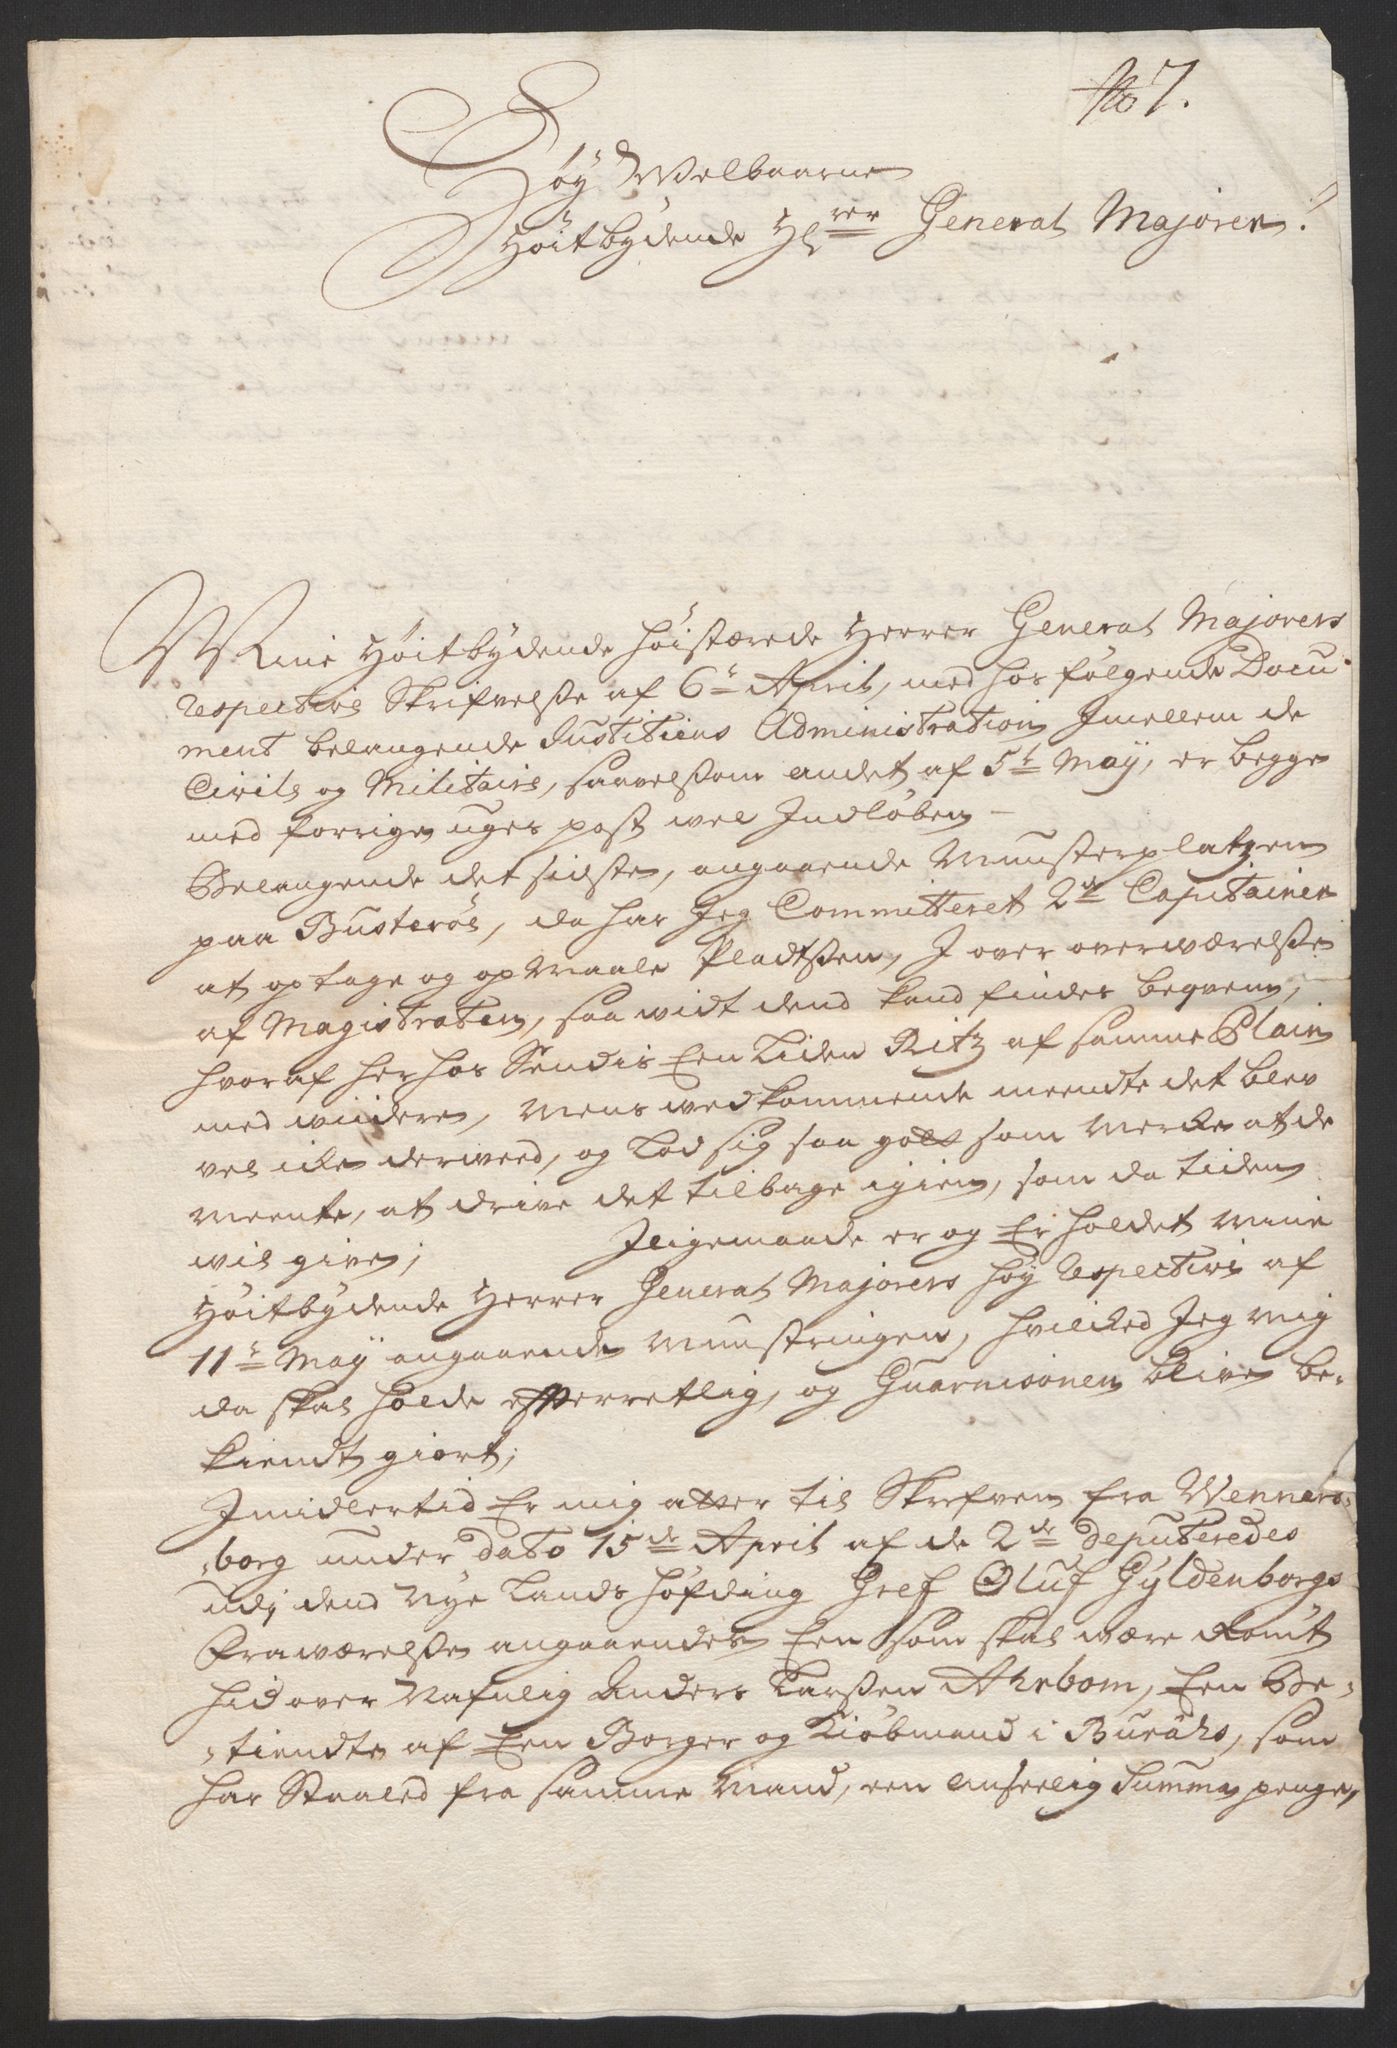 No 7.
Høy Welbaarne
Høitbydende Hrrer General Majorer!
Mine Høitbydende Høistærede Herrer General Majorers
respective Skrifvelsse af 6te April, med hos følgende Docu-
ment belangende Justitiens Administration Imellem de
Civile og Militaire, saavelsom andet af 5te May, er begge
med forrige uges post wel Indløben -
Belangende det sidste, angaaende Munsterplatzen
paa Busterøe, da har Jeg Committeret 2de Capitainer
at optage og opmaale Pladtssen, I over overwærelsse
af Magistraten, saa widt dend kand findes beqvem,
hvoraf her hos Sendis Een Liden Ritz af samme Plain
med widere, Mens wedkommende meendte det blev
vel icke derweed, og Lod sig saa got som Mercke at de
Meente, at drive det tilbage igien, som da tiden
wil give; Iligemaade er og Er holdet Mine
Høitbydende Herrer General Majorers høy respective af
11te May angaaende Munstringen, hvilcked Jeg Mig
da skal holde efterretlig, og Guarnisonen blive be-
kiendt giort;
Imidlertid Er mig atter til Skrefven fra Wenners-
borg under dato 15de April af de 2de deputeredes
udi dend Nye Lands höfding Gref Oluf Gyldenborgs
Frawærelsse angaaendes Een som skal være Komt
hid over Nafnlig Anders Larssen Ahrbom, Een Be-
tiendte af Een Borger og Kiöbmand i Buråhs, som
har Staaled fra samme Mand, een Anseelig Summa penge,